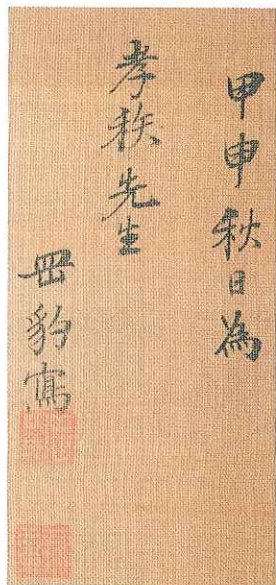 甲申秋日為
孝秩先生
豹寫